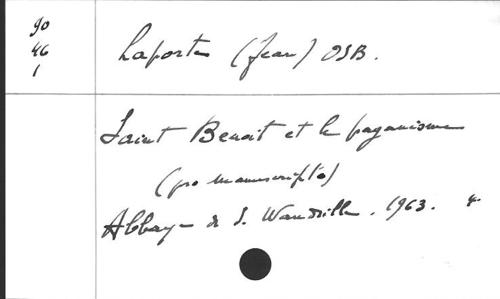 90
46
1
Laporte (Jean) OSB.
Saint Benoit et le paganisme
(pro manuscripto)
Abbaye de S. Wandrille. 1963. 4°